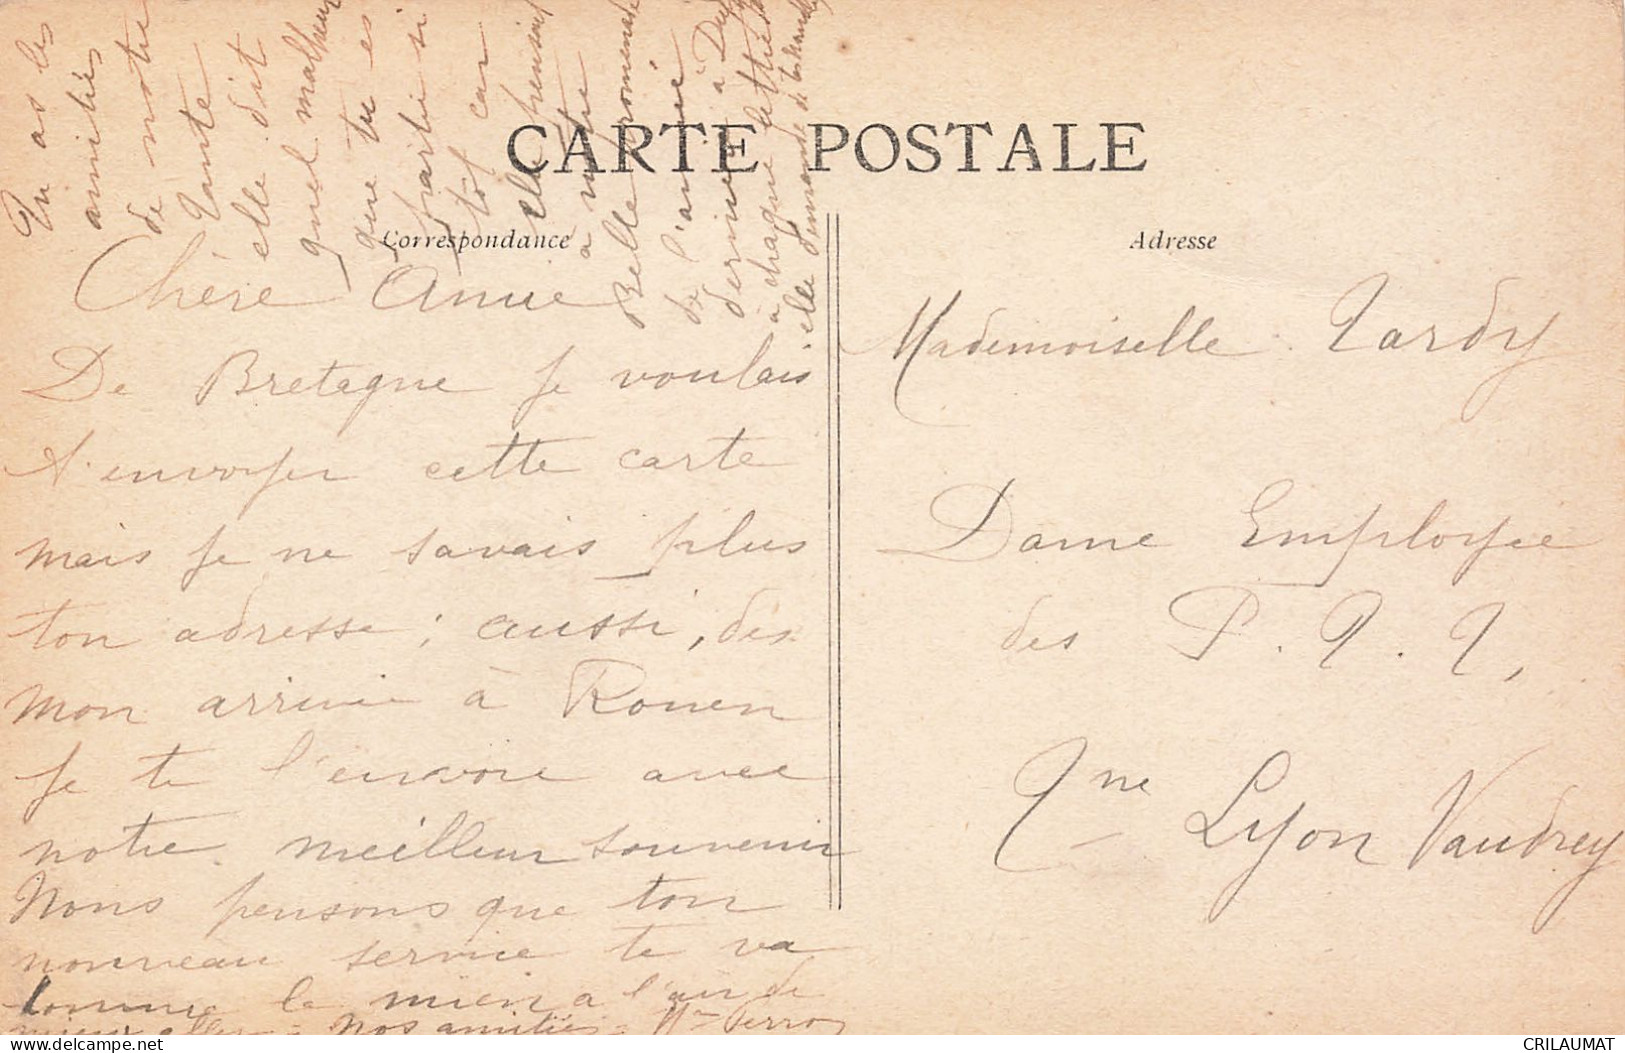 CARTE POSTALE
Correspondance
Adresse
Chère Amie
De Bretagne je voulais
t'envoyer cette carte
mais je ne savais plus
ton adresse ; aussi, dès
mon arrivée à Rouen
je te l'envoie avec
notre meilleur souvenir
Nous pensons que ton
nouveau service te va
comme le mien a l'air de
mieux aller - Nos amitiés - Perron
Tu as les
amitiés
de notre
Tante
elle dit
quel malheur
que tu es
partie si
tôt car
elle pensait
a notre
Belle promenade
de l'année
dernière à
à chaque lettre
elle demande de
Mademoiselle Tardy
Dame Employée
des P. T. T,
Tne Lyon Vaudrey
www.delcampe.net
CRILAUMAT